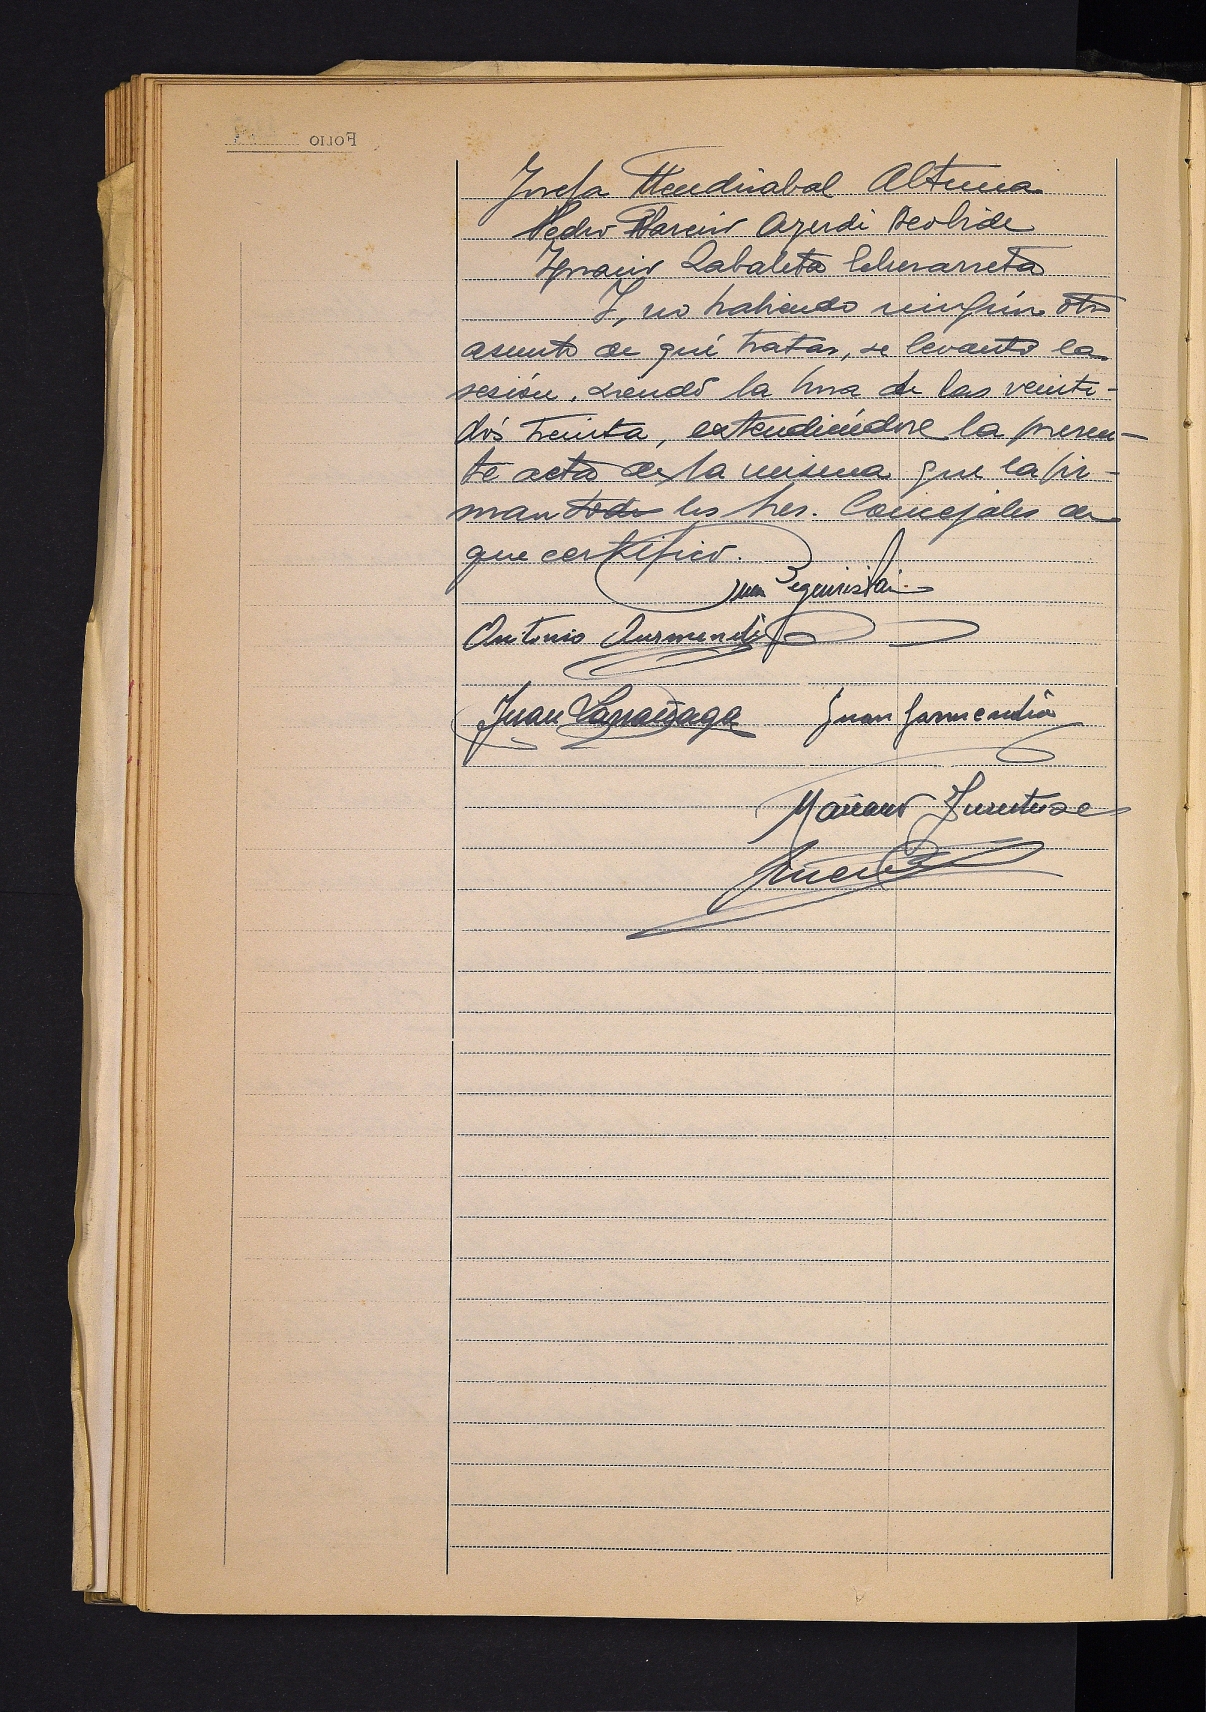 Josefa Mendizabal Altuna
Pedro Marcir Azurdi Beobide
Ignacio Zabaleta Echevarreta
Y, no habiendo ningún otro
asunto de qué tratar, se levantó la
sesión, siendo la hora de las veinti-
dós treinta, extendiéndose la presen-
te acta de la misma que la fir-
man todo los Sres. Concejales de
que certifico.
Juan Beguiristain
Antonio Aurmendi
Juan Larrañaga Juan Garmendia
Mariano